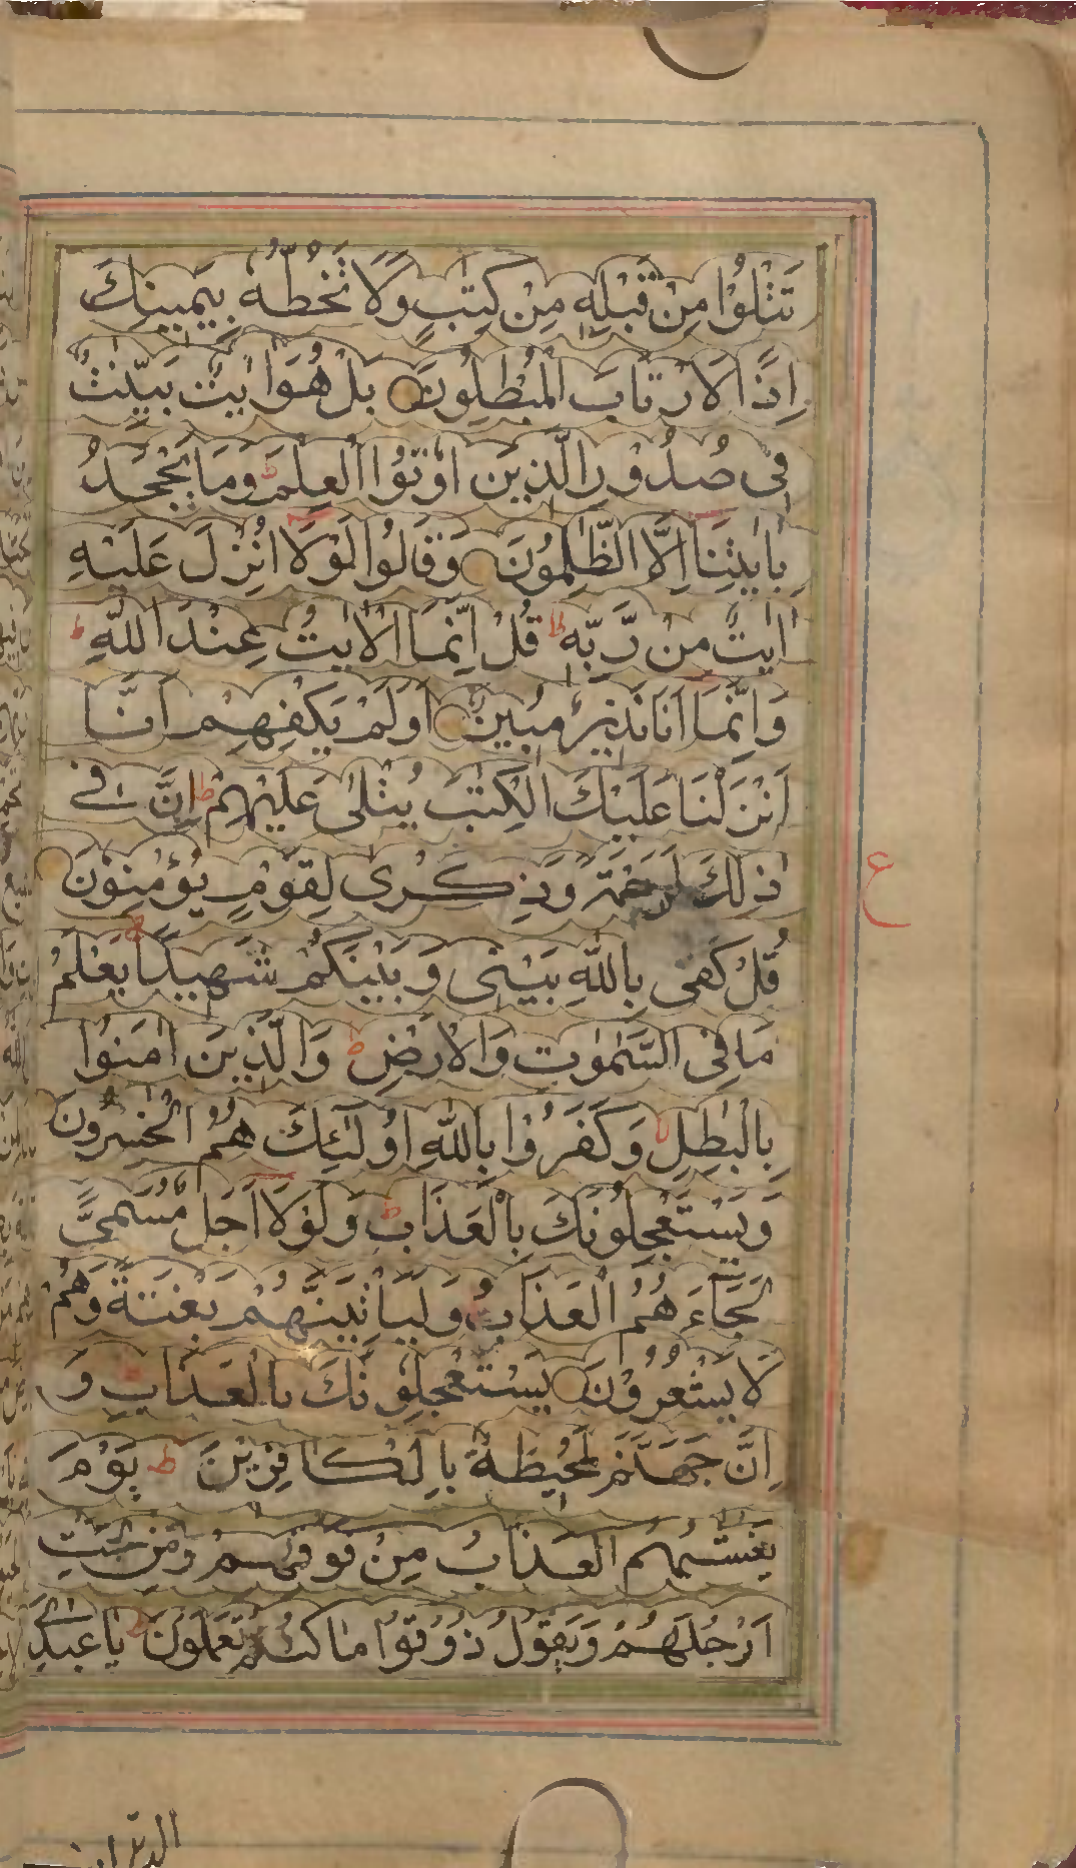 تَتْلُوْا مِنْ قَبْلِهٖ مِنْ كِتٰبٍ وَّلَا تَخُطُّهٗ بِيَمِيْنِكَ
اِذًا لَارْتَابَ الْمُبْطِلُوْنَ بَلْ هُوَ اٰيٰتٌ بَيِّنٰتٌ
فِيْ صُدُوْرِ الَّذِيْنَ اُوْتُوا الْعِلْمَ ط وَمَا يَجْحَدُ
بِاٰيٰتِنَا اِلَّا الظّٰلِمُوْنَ وَقَالُوْا لَوْلَا اُنْزِلَ عَلَيْهِ
اٰيٰتٌ مِّنْ رَّبِّهٖ ط قُلْ اِنَّمَا الْاٰيٰتُ عِنْدَ اللّٰهِ ط
وَاِنَّمَا اَنَا نَذِيْرٌ مُّبِيْنٌ اَوَلَمْ يَكْفِهِمْ اَنَّا
اَنْزَلْنَا عَلَيْكَ الْكِتٰبَ يُتْلٰى عَلَيْهِمْ ط اِنَّ فِيْ
ذٰلِكَ لَرَحْمَةً وَّذِكْرٰى لِقَوْمٍ يُّؤْمِنُوْنَ
ع
قُلْ كَفٰى بِاللّٰهِ بَيْنِيْ وَبَيْنَكُمْ شَهِيْدًا يَعْلَمُ
مَا فِي السَّمٰوٰتِ وَالْاَرْضِ ط وَالَّذِيْنَ اٰمَنُوْا
بِالْبٰطِلِ وَكَفَرُوْا بِاللّٰهِ اُولٰٓئِكَ هُمُ الْخٰسِرُوْنَ
وَيَسْتَعْجِلُوْنَكَ بِالْعَذَابِ ط وَلَوْلَا اَجَلٌ مُّسَمًّى
لَّجَآءَهُمُ الْعَذَابُ وَلَيَاْتِيَنَّهُمْ بَغْتَةً وَّهُمْ
لَا يَشْعُرُوْنَ يَسْتَعْجِلُوْنَكَ بِالْعَذَابِ ط وَ
اِنَّ جَهَنَّمَ لَمُحِيْطَةٌ بِالْكَافِرِيْنَ ط يَوْمَ
يَغْشٰىهُمُ الْعَذَابُ مِنْ فَوْقِهِمْ وَمِنْ تَحْتِ
اَرْجُلِهِمْ وَيَقُوْلُ ذُوْقُوْا مَا كُنْتُمْ تَعْمَلُوْنَ يَا عِبَادِيَ